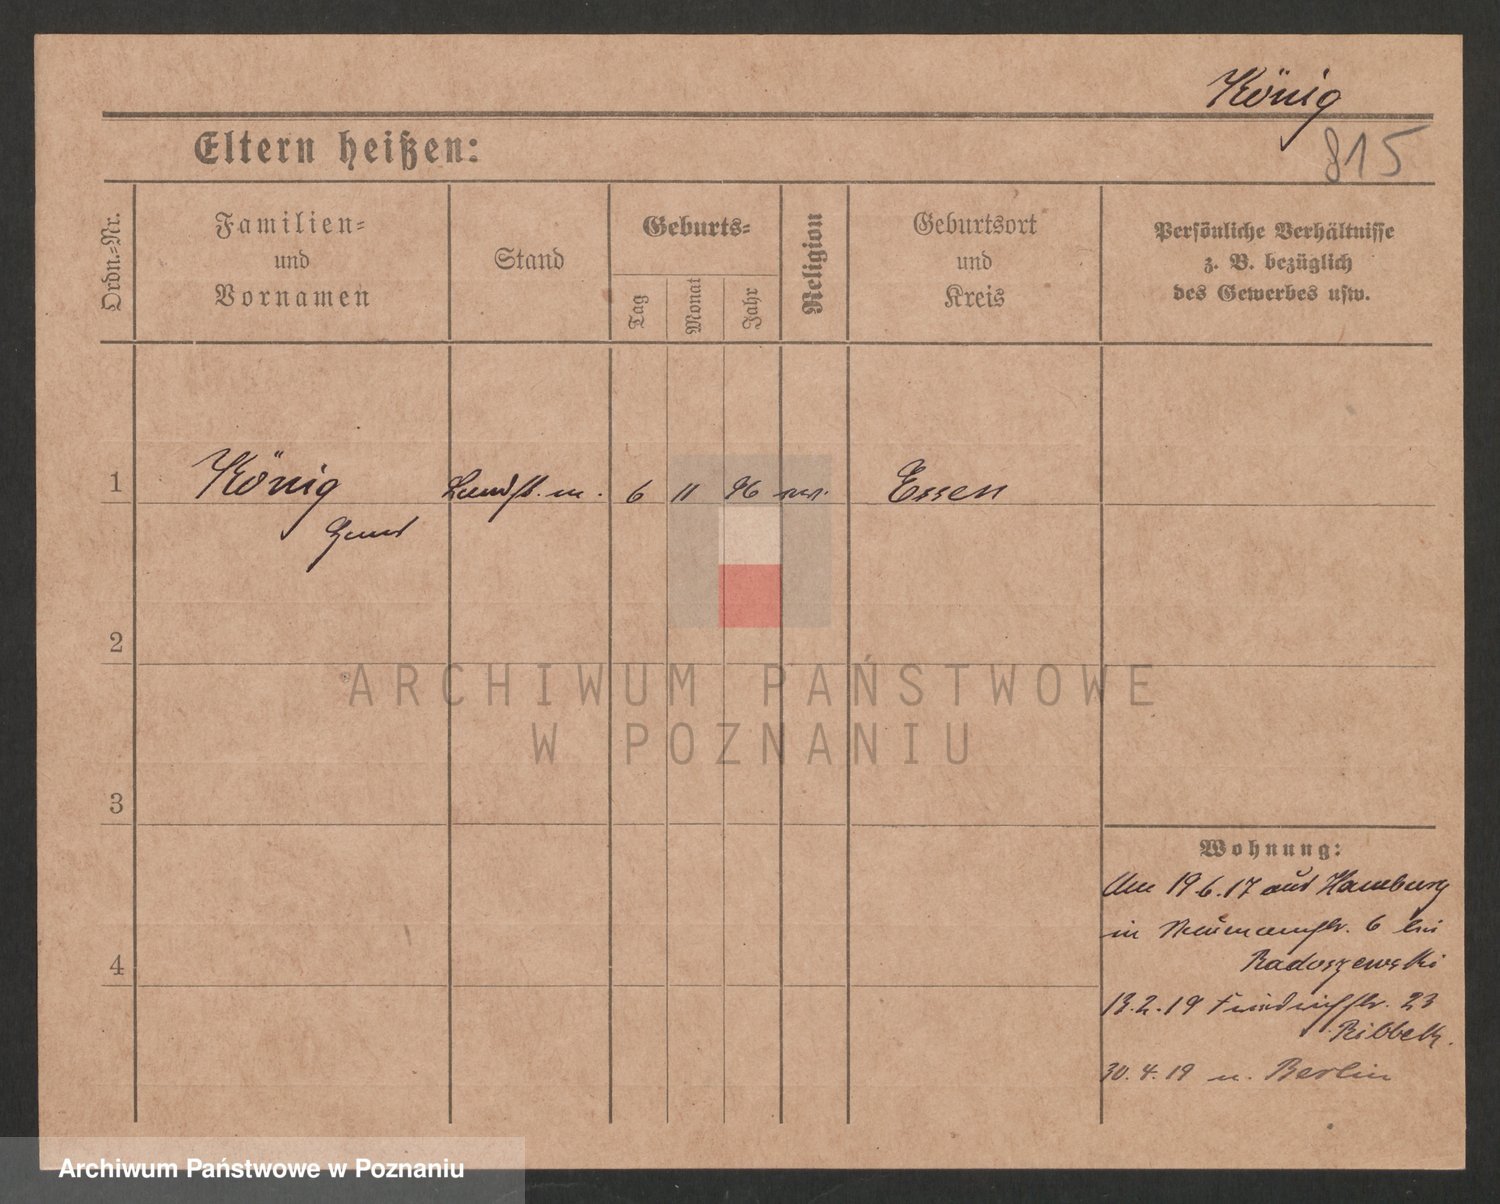 König
815
Eltern heißen:
Ordn.-Nr.
Familien-
und
Vornamen
Stand
Geburts-
Tag
Monat
Jahr
Religion
Geburtsort
und
Kreis
Persönliche Verhältnisse
z. B. bezüglich
des Gewerbes usw.
1
König
Landst. m. 6 11 96
Essen
2
3
4
Wohnung:
Am 19.6.17 aus Hamburg
in 6 bei
Radoszewski
13.2.19 Friedrichstr. 23
Ribbeck.
30.4.19 n. Berlin
ARCHIWUM PAŃSTWOWE
W POZNANIU
Archiwum Państwowe w Poznaniu